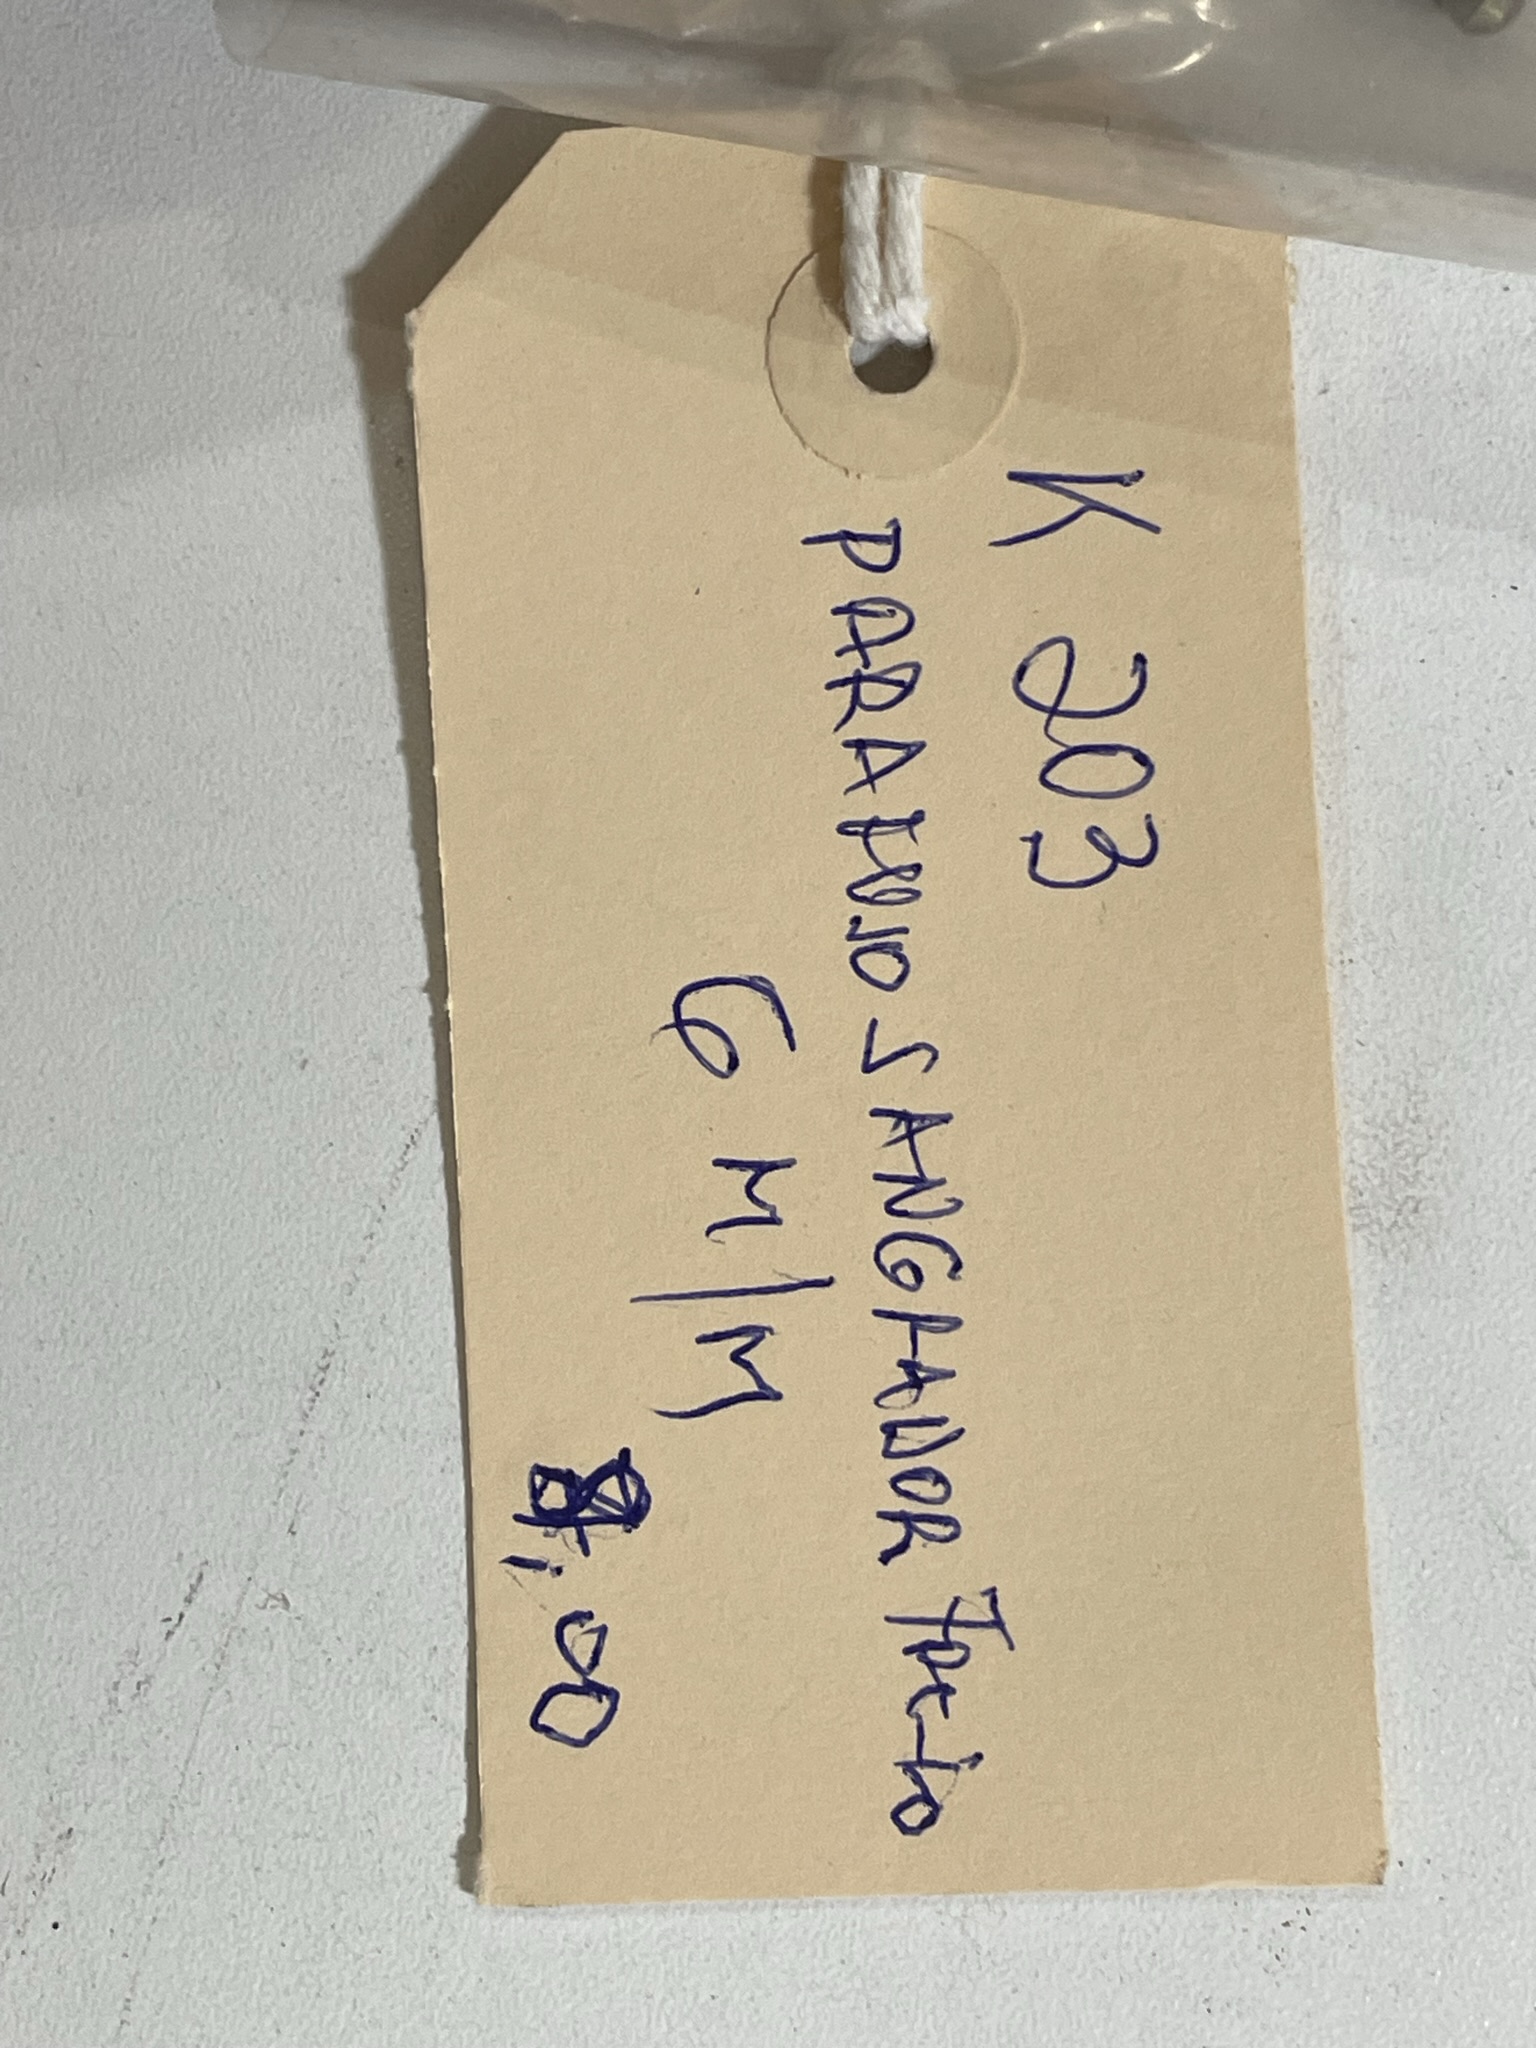 K 203
PARAFUJO SANGRADOR TACTO
6 M/M
,00